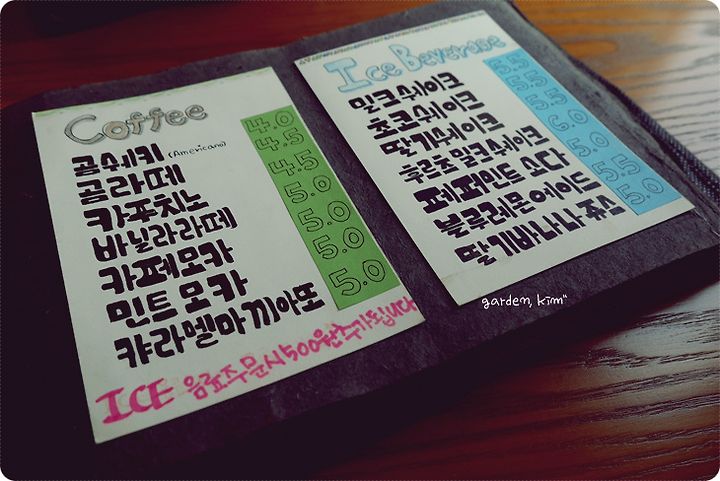 Coffee
곰쉐키 (Americano) 4.0
곰라떼 4.5
카푸치노 4.5
바닐라라떼 5.0
카페모카 5.0
민트모카 5.0
캬라멜마끼아또 5.0
ICE 음료주문시 500원추가됩니다
Ice Beverage
밀크쉐이크 5.5
쵸코쉐이크 5.5
딸기쉐이크 5.5
후르츠밀크쉐이크 6.0
페퍼민트 소다 5.0
블루레몬에이드 5.5
딸기바나나쥬스 5.0
garden, kim"